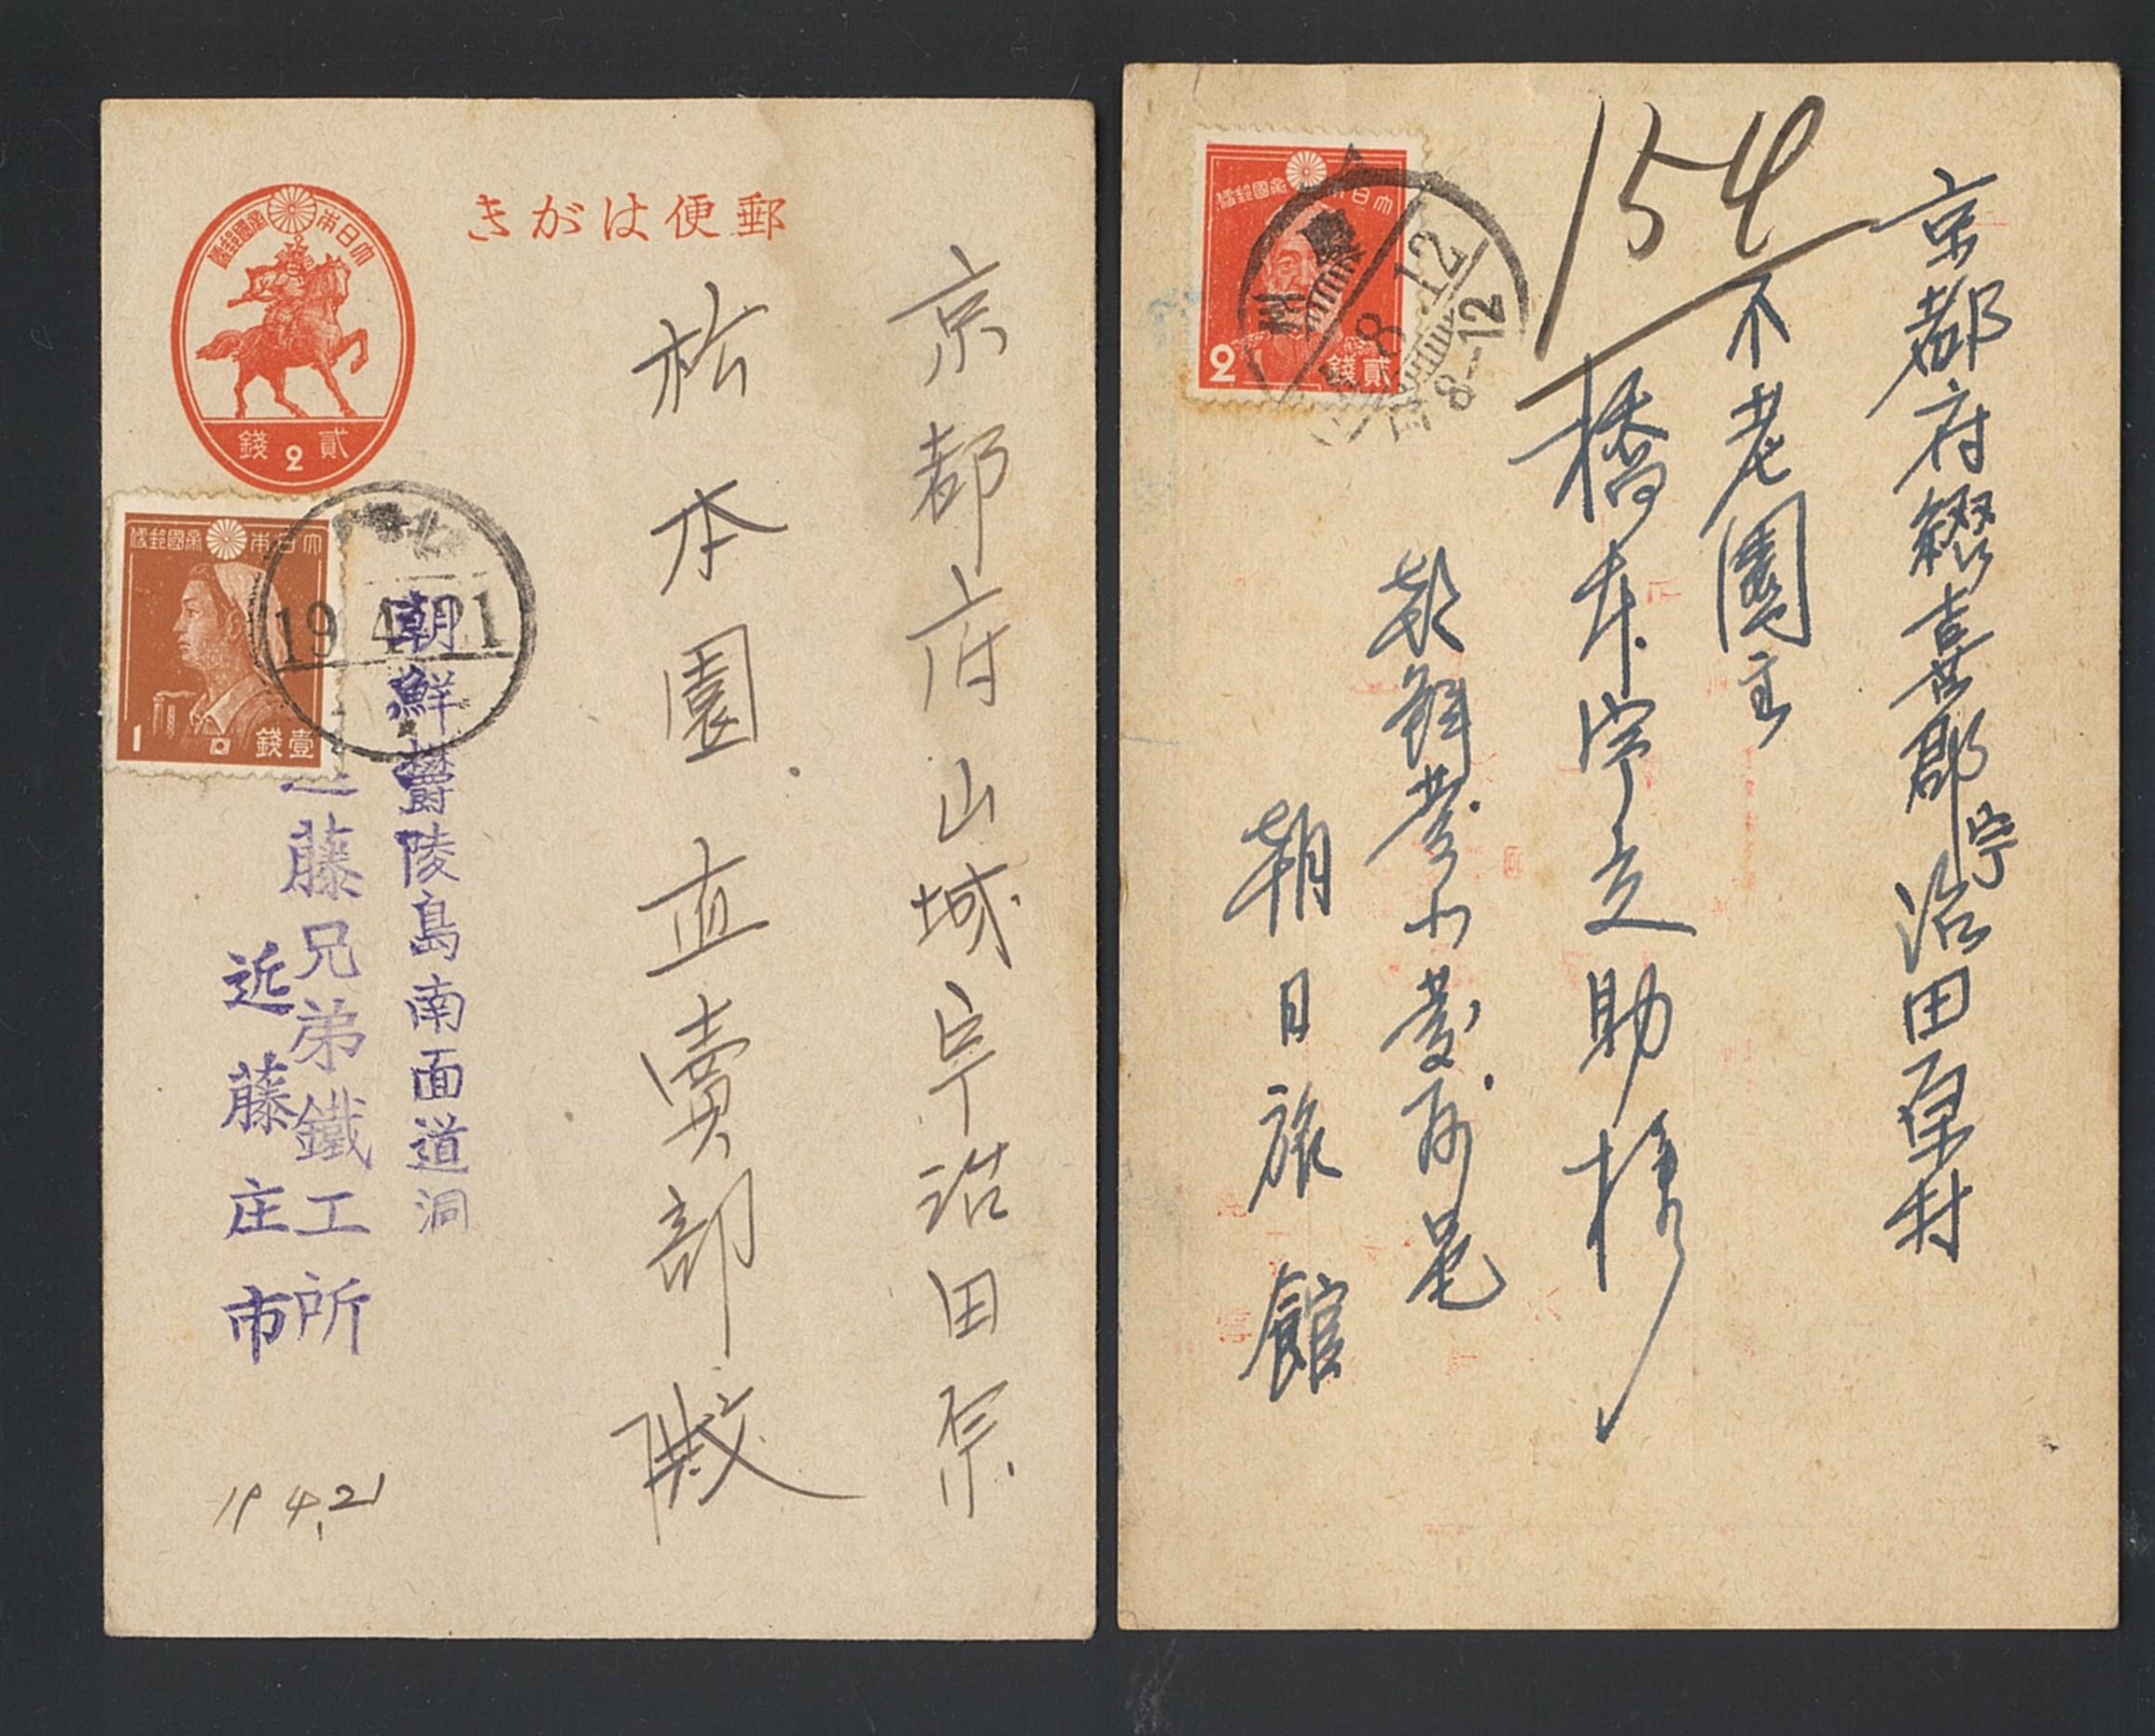 郵便はがき
大日本帝國郵便
貳 2 錢
大日本帝國郵便
1 壹錢
19 4 21
京都府山城宇治田原
松本園直賣部
朝鮮欝陵島南面道洞
近藤兄弟鐵工所
近藤庄市
19 4.21
大日本帝國郵便
2 貳錢
州
8 12
8-12
154
京都府綴喜郡宇治田原村
不老園主
橋本宇之助様
朝鮮
朝日旅館